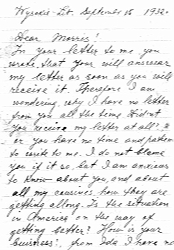 Wysokie-Lit. September 16 1932.
Dear Morris!
In your letter to me you
wrote, that your will answear
my letter as soon as you will
receive it. Therefore I am
wondering, why I have no letter
from you all the time. Did not
you receive my letter at all? or
or you have no time and patien
to write to me. I do not blame
you if it so, but I am anxious
to know about you, and about
all my cousines how they are
getting allong. Is the situation
in America on the way of
getting better? How is your
business? from Ida I have no